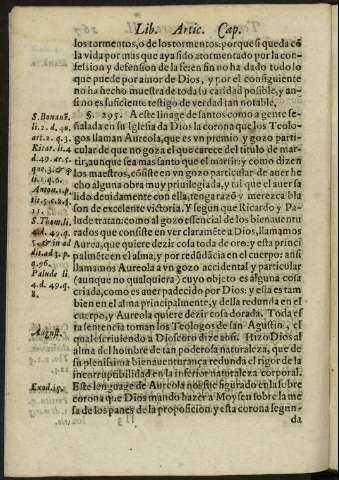 Lib. Artic. Cap.
los tormentos, o de los tormentos: porque si queda cõ
la vida por mas que aya sido atormentado por la con-
fession y defension de la fe: en fin no ha dado todo lo
que puede por amor de Dios, y por el consiguiente
no ha hecho muestra de toda su caridad posible, y an-
si no es suficiente testigo de verdad tan notable,
§. 295. A este linage de santos como a gente se-
ñalada en su Iglesia da Dios la corona que los Teolo-
gos llaman Aureola, que es vn premio y gozo parti-
cular de que no goza el que carece del titulo de mar-
tir, aunque sea mas santo que el martir: y como dizen
los maestros, cõsiste en vn gozo particular de auer he
cho alguna obra muy priuilegiada, y tal que el auer sa
lido deuidamente con ella, tenga razõ y merezca bla
son de excelente victoria. Y segun que Ricardo y Pa-
lude tratan: como al gozo essencial de los bienauentu
rados que consiste en ver claramẽte a Dios, llamamos
Aurea, que quiere dezir cosa toda de oro: y esta princi
palmẽte en el alma, y por redũdãcia en el cuerpo: ansi
llamamos Aureola a vn gozo accidental y particular
(aunque no qualquiera) cuyo objeto es alguna cosa
criada, como es auer padecido por Dios: y esta es tam
bien en el alma principalmente, y della redunda en el
cuerpo, y Aureola quiere dezir cosa dorada. Toda es
ta sentencia toman los Teologos de san Agustin, el
qual escriuiendo a Dioscoro dize ansi. Hizo Dios al
alma del hombre de tan poderosa naturaleza, que de
su plenissima bienauenturança redunda el rigor de la
incorruptibilidad en la inferior naturaleza corporal.
Este lenguage de Aureola nos fue figurado en la sobre
corona que Dios mando hazer a Moysen sobre la me
sa de los panes de la proposicion: y esta corona segun-
da
S. Bonauẽ.
li. 2. d. 40.
art. 2. q. 3.
Ricar. li. 4
d. 49. ar. 5.
S. Tom. li.
4. d. 49. q.
q. 96.
Palude li.
4. d. 49. q.
8.
August.
Exod. 25.